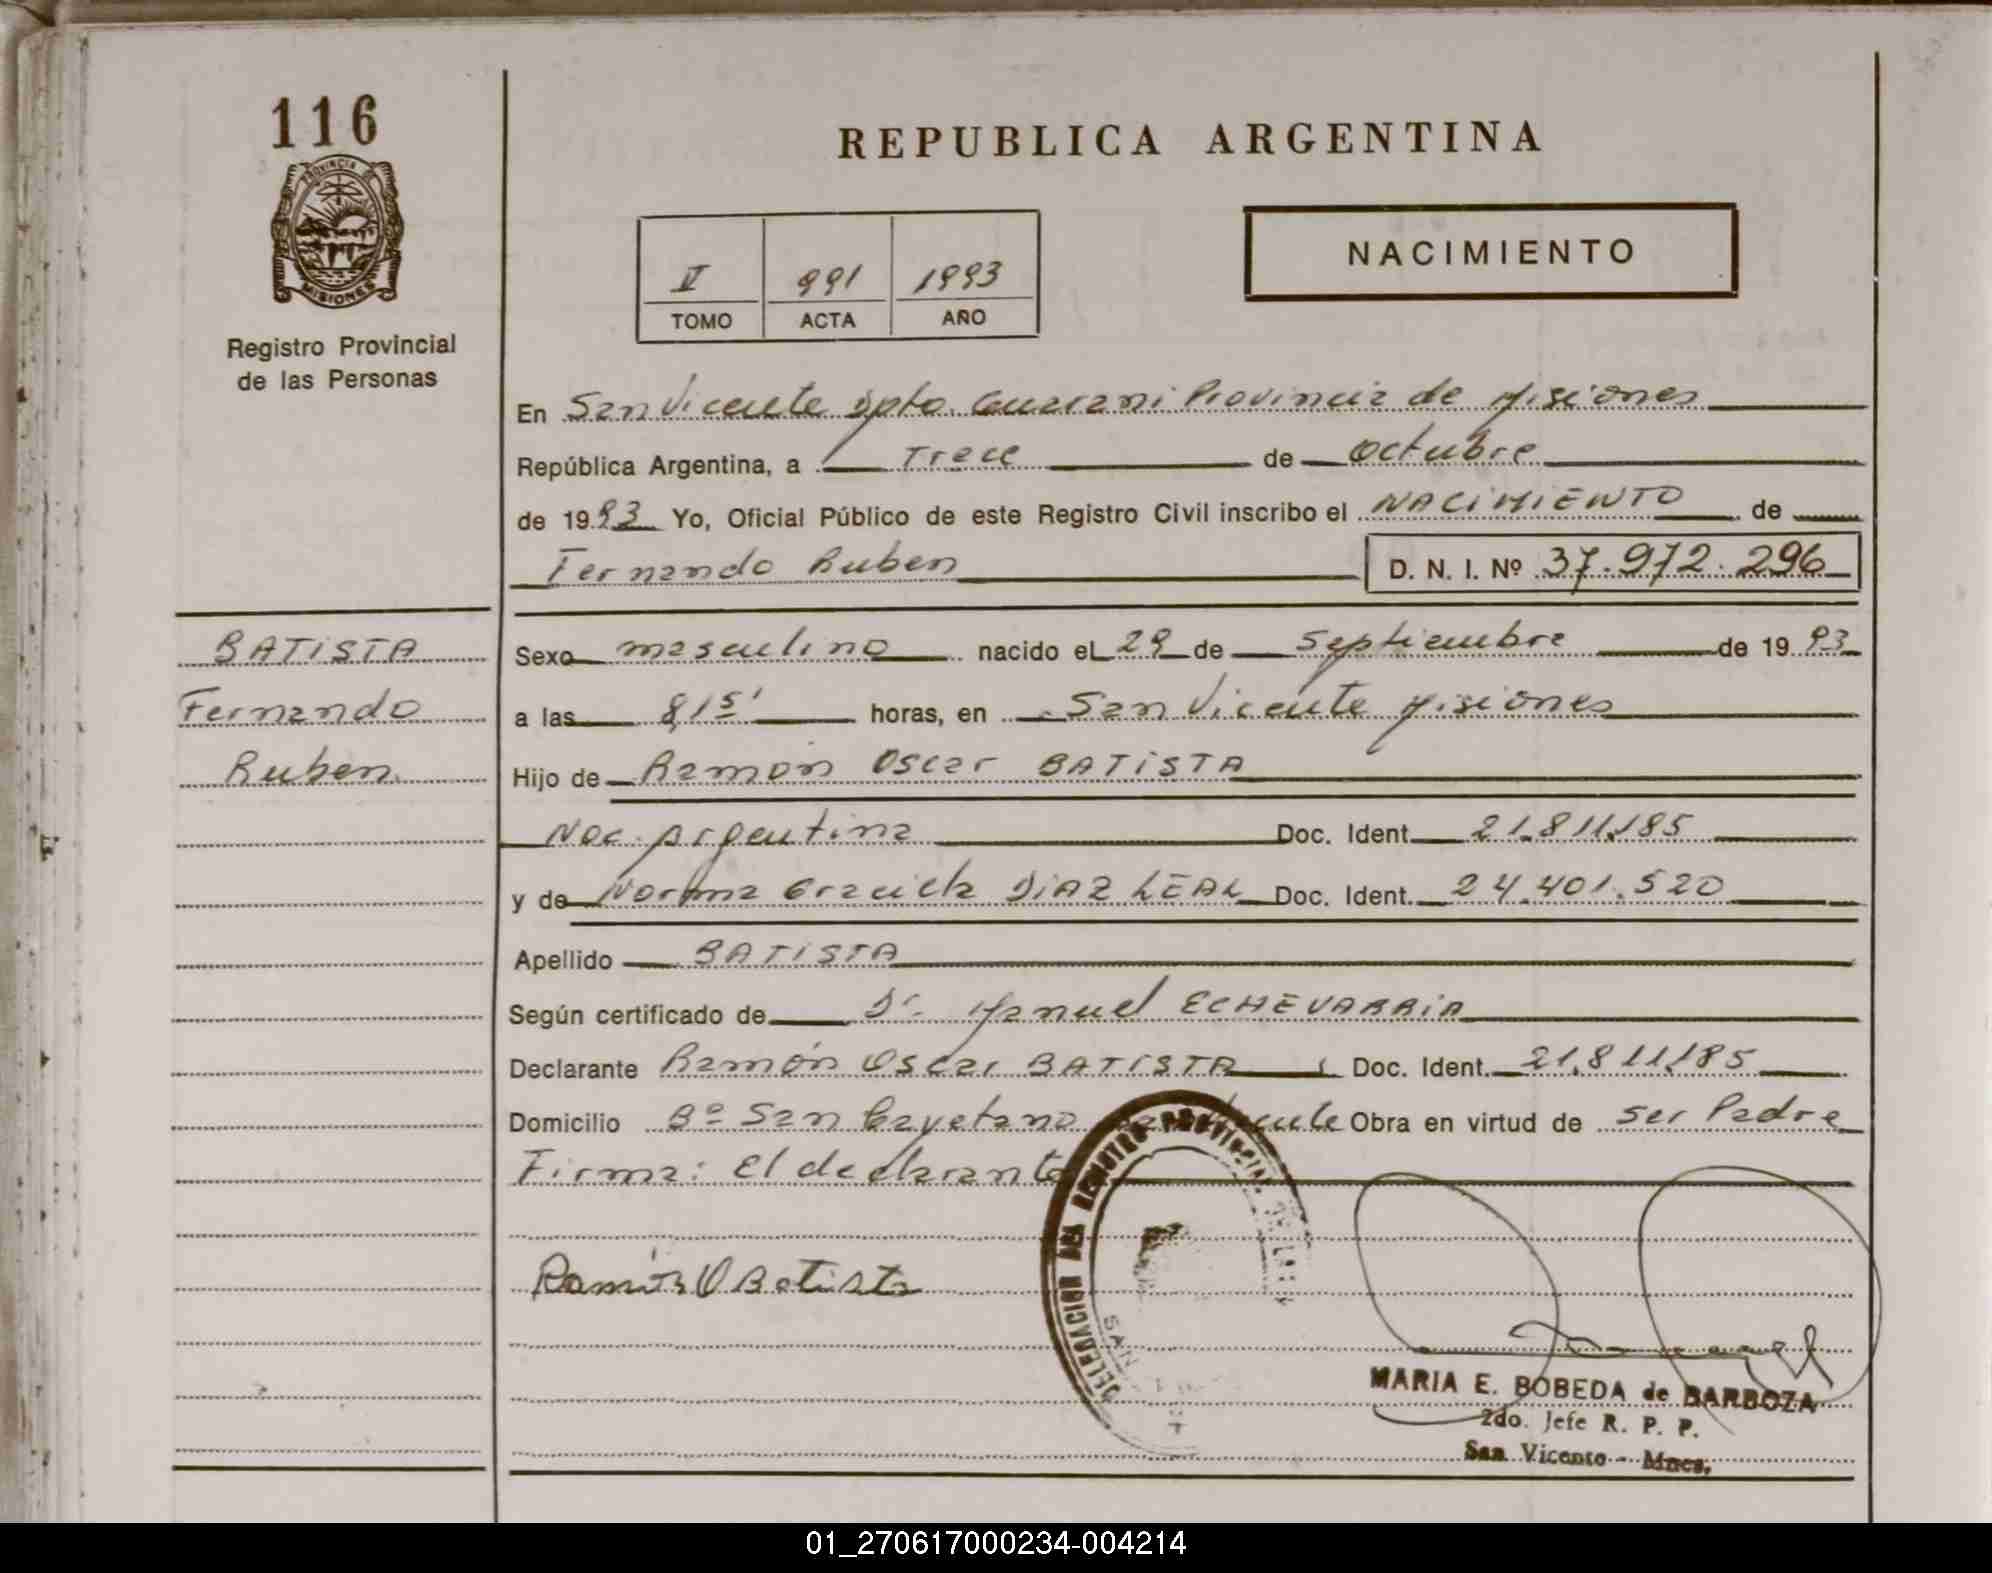 116
PROVINCIA DE
MISIONES
Registro Provincial
de las Personas
REPUBLICA ARGENTINA
V 991 1993
TOMO ACTA AÑO
NACIMIENTO
En San Vicente Dpto Guarani Provincia de Misiones
República Argentina, a Trece de Octubre
de 1993 Yo, Oficial Público de este Registro Civil inscribo el NACIMIENTO de
Fernando Ruben D. N. I. Nº 37.972.296
BATISTA
Fernando
Ruben
Sexo masculino nacido el 29 de Septiembre de 1993
a las 8,15' horas, en San Vicente Misiones
Hijo de Ramón Oscar BATISTA
Nac. Argentina Doc. Ident. 21.811.185
y de Norma Graciela DIAZ LEAL Doc. Ident. 24.401.520
Apellido BATISTA
Según certificado de Dr. Manuel ECHEVARRIA
Declarante Ramón Oscar BATISTA Doc. Ident. 21.811.185
Domicilio Bº San Cayetano San Vicente Obra en virtud de ser Padre
Firma: El declarante
Ramón O Batista
DELEGACION DEL REGISTRO PROVINCIAL DE LAS
SAN
MARIA E. BOBEDA de BARBOZA
2do. Jefe R. P. P.
San Vicente - Mnes.
01_270617000234-004214